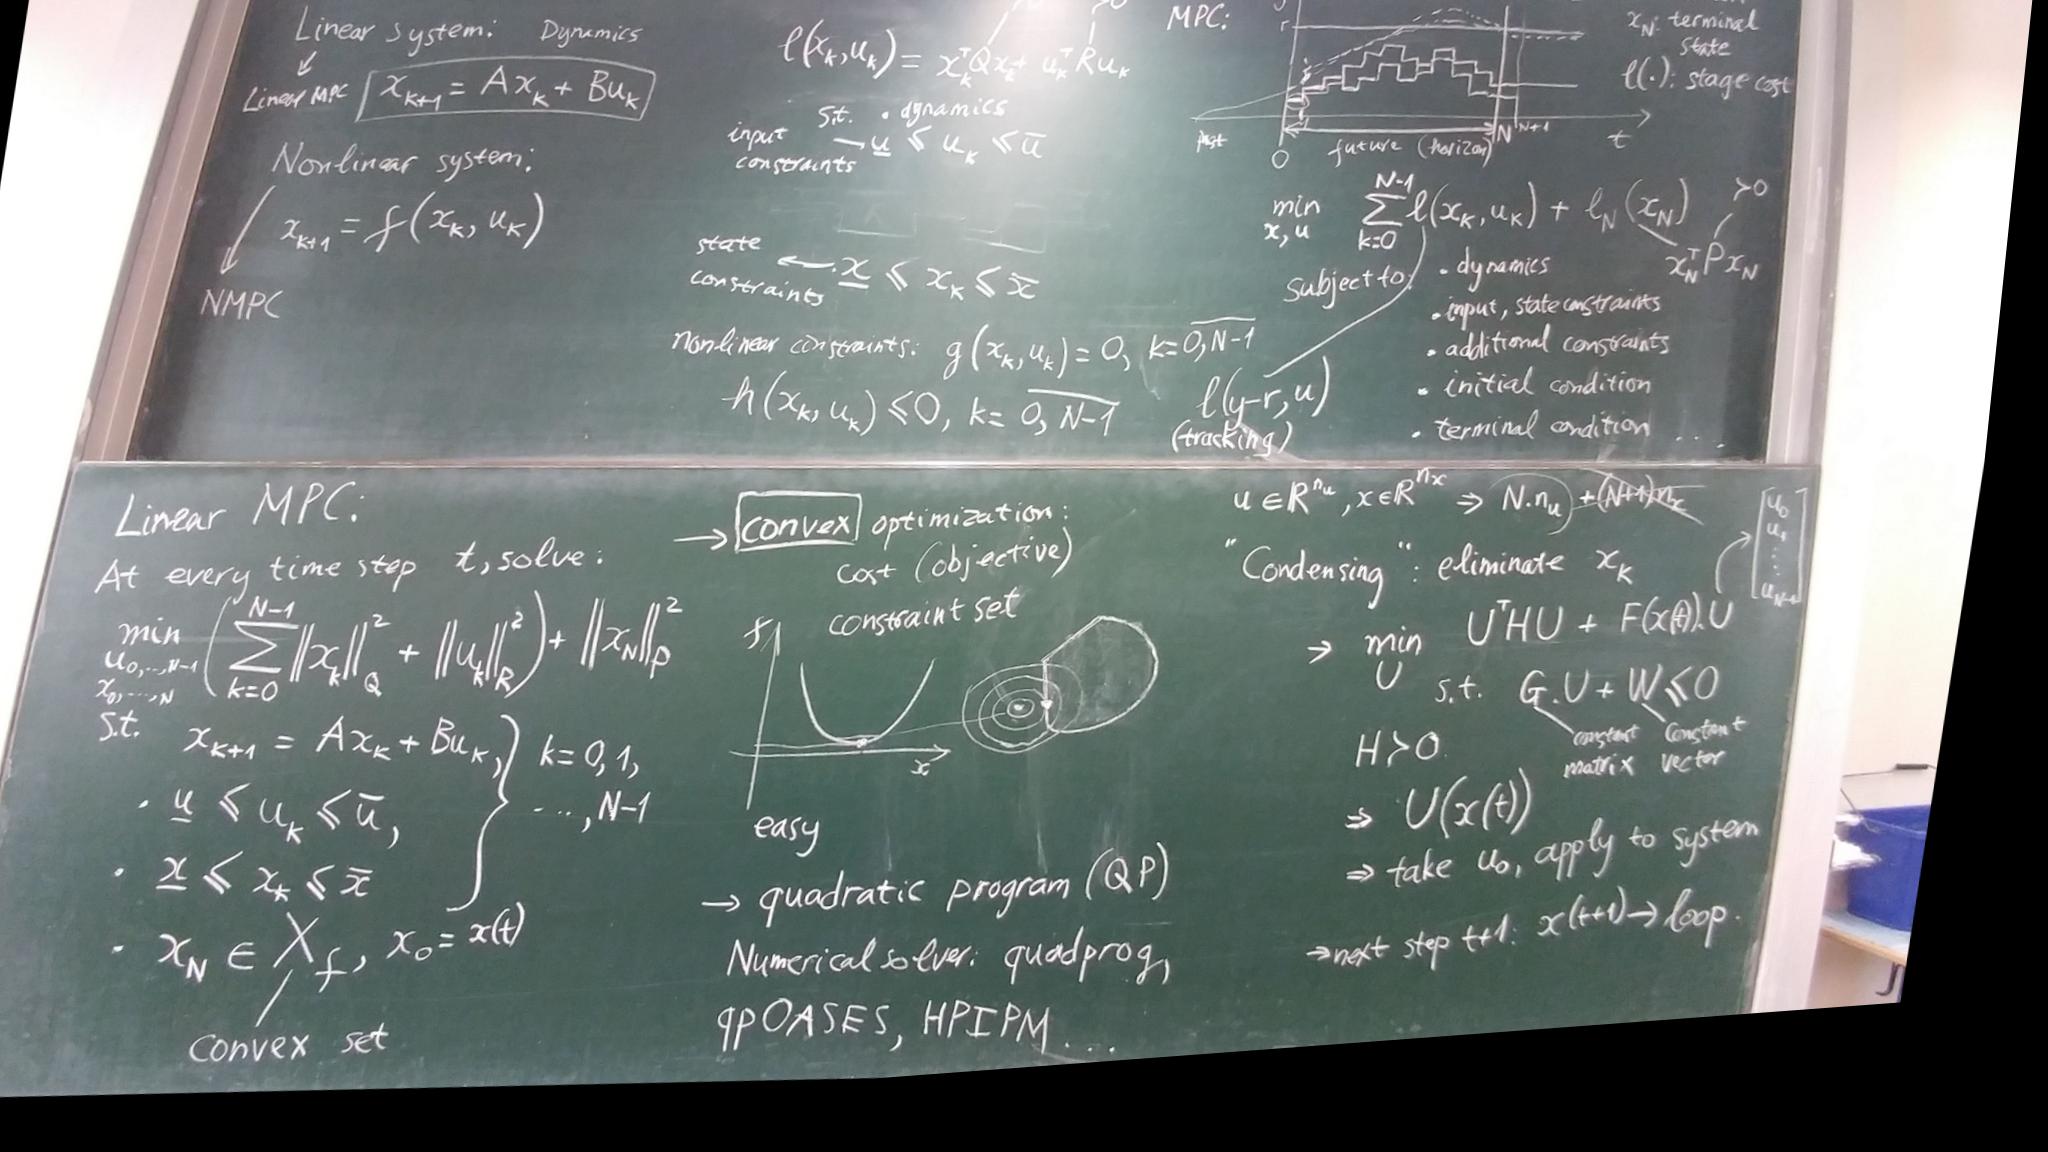 Linear system: Dynamics
Linear MPC x_{k+1} = Ax_k + Bu_k
Nonlinear system:
x_{k+1} = f(x_k, u_k)
NMPC
l(x_k, u_k) = x_k^T Q x_k + u_k^T R u_k
s.t. • dynamics
input constraints → u̲ ≤ u_k ≤ ū
state constraints ← x̲ ≤ x_k ≤ x̄
nonlinear constraints: g(x_k, u_k) = 0, k = \overline{0, N-1}
h(x_k, u_k) ≤ 0, k = \overline{0, N-1}
MPC:
r
past
0
future (horizon)
N
N+1
t
x_N: terminal
state
l(.): stage cost
min_{x,u} \sum_{k=0}^{N-1} l(x_k, u_k) + l_N(x_N)
>0
x_N^T P x_N
subject to:
• dynamics
• input, state constraints
• additional constraints
• initial condition
• terminal condition ...
l(y-r, u)
(tracking)
Linear MPC:
At every time step t, solve:
min_{u_0,...,N-1, x_0,...,N} ( \sum_{k=0}^{N-1} ||x_k||_Q^2 + ||u_k||_R^2 ) + ||x_N||_P^2
s.t. x_{k+1} = Ax_k + Bu_k,
• u̲ ≤ u_k ≤ ū,
• x̲ ≤ x_k ≤ x̄
} k = 0, 1,
..., N-1
• x_N ∈ X_f, x_0 = x(t)
convex set
→ convex optimization:
cost (objective)
constraint set
f
x
easy
→ quadratic program (QP)
Numerical solver: quadprog,
qpOASES, HPIPM ...
u ∈ R^{n_u}, x ∈ R^{n_x} ⇒ N.n_u + (N+1)n_x
"Condensing": eliminate x_k
[u_0
u_1
⋮
u_{N-1}]
→ min_U U^T H U + F(x(t)).U
s.t. G.U + W ≤ 0
constant matrix
constant vector
H > 0
⇒ U(x(t))
⇒ take u_0, apply to system
→ next step t+1: x(t+1) → loop.